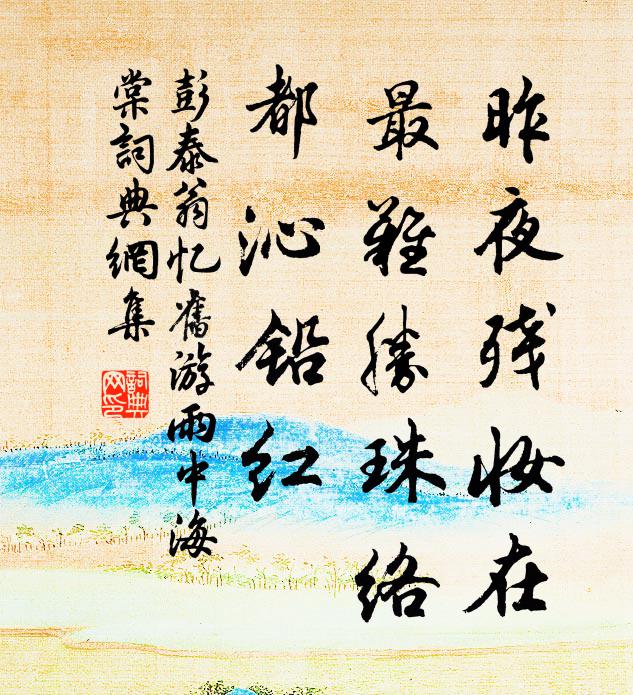 昨夜残妆在
最难勝珠络
都沁铅红
彭泰翁忆舊游雨中海
棠詞典網集
詞典
网印